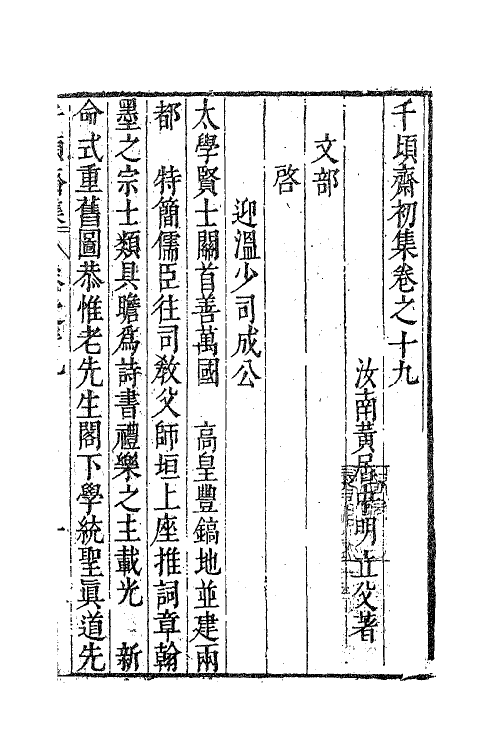 千頃齋初集卷之十九
汝南黃居中明立父著
文部
啓
迎溫少司成公
太學賢士關首善萬國　高皇豐鎬地並建兩
都　特簡儒臣往司敎父師垣上座推詞章翰
墨之宗士類具瞻爲詩書禮樂之主載光　新
命式重舊圖恭惟老先生閣下學統聖眞道先